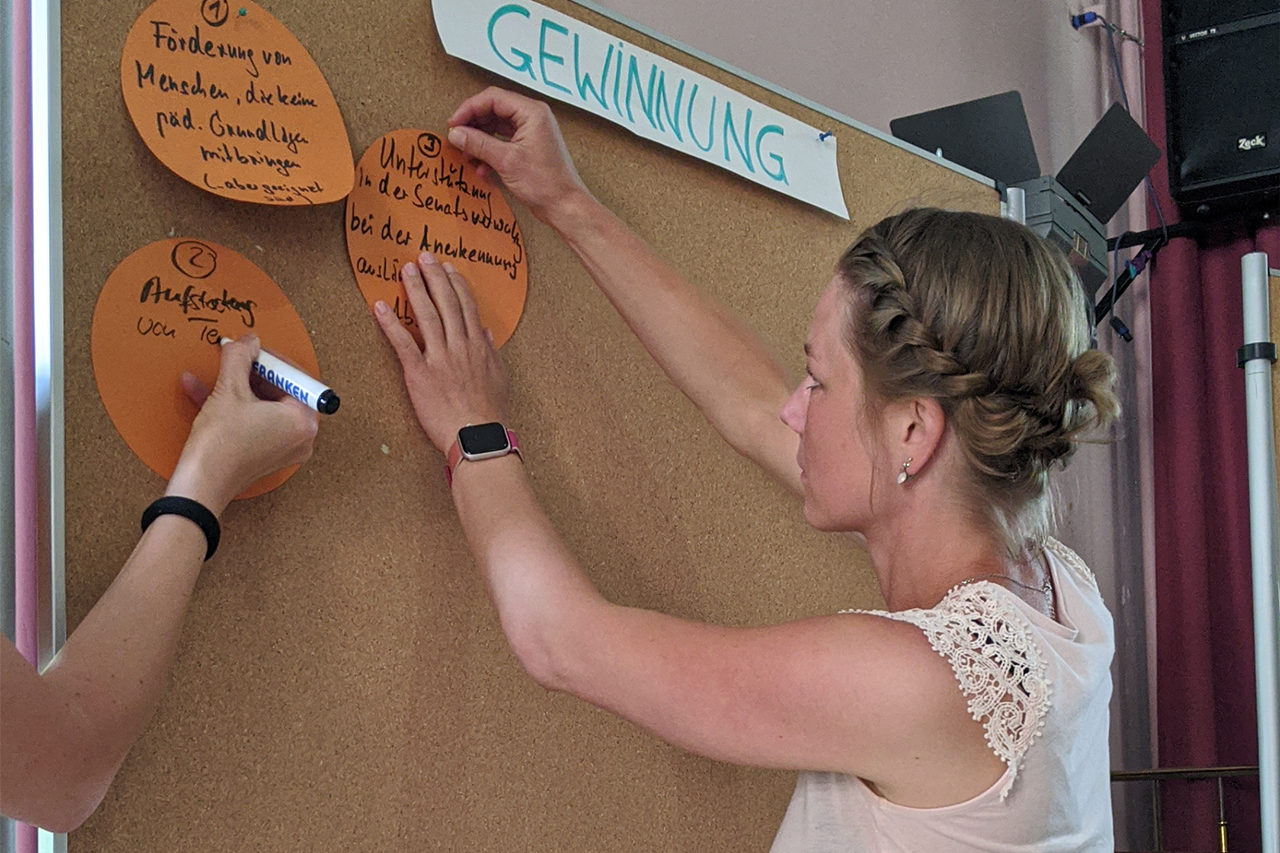 GEWINNUNG
1
Förderung von
Menschen, die keine
päd. Grundlagen
mitbringen
(aber geeignet
sind
3
Unterstützung
in der Senatsverwaltg
bei der Anerkennung
2
Aufstockung
von
FRANKEN
Zeck